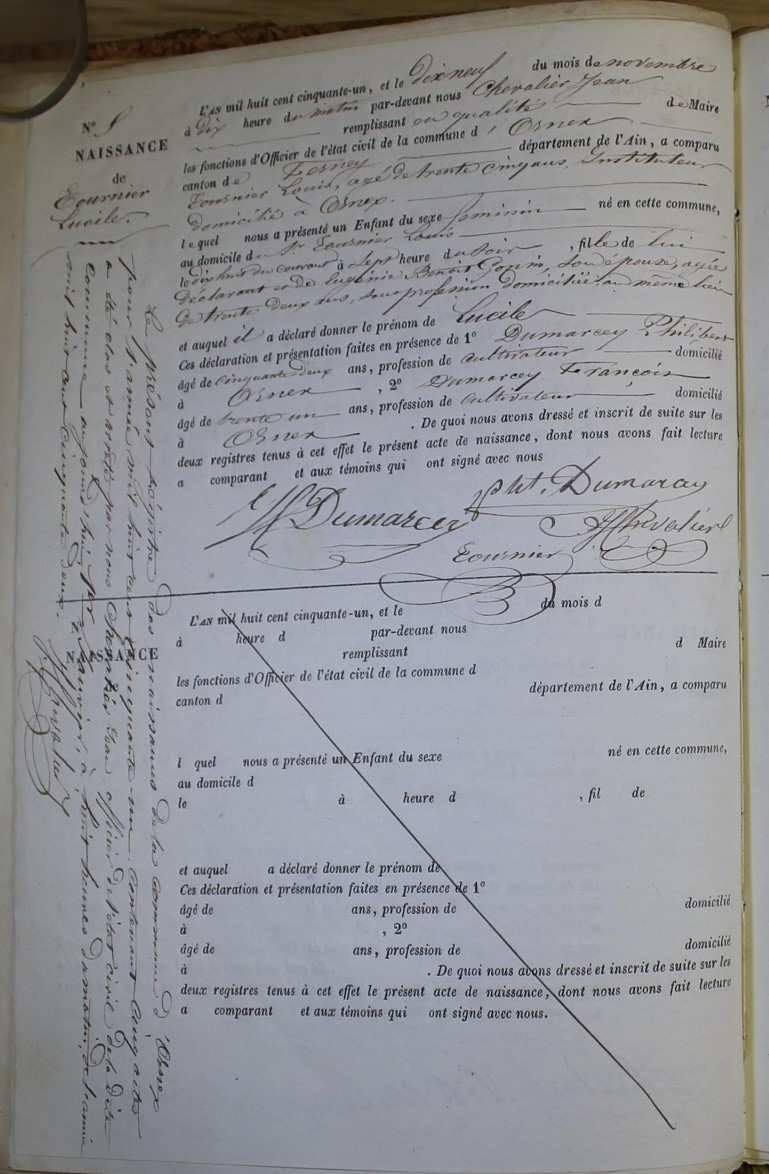 N° 5
NAISSANCE
de
Fournier
Lucile.
L'AN mil huit cent cinquante-un, et le dix neuf du mois de novembre
à dix heure du matin par-devant nous Chevalier Jean
remplissant en qualité de Maire
les fonctions d'Officier de l'état civil de la commune d'Ornex
canton de Ferney département de l'Ain, a comparu
Fournier Louis, agé de trente cinq ans, Instituteur
domicilié à Ornex.
lequel nous a présenté un Enfant du sexe feminin né en cette commune,
au domicile du Sr Fournier Louis
le dix huit du courant à sept heure du soir, fille de lui
déclarant et de Eugénie Benoit Gonin, son épouse, agée
de trente deux ans, sans profession domiciliée au même lieu
et auquel il a déclaré donner le prénom de Lucile
Ces déclaration et présentation faites en présence de 1° Dumarcey Philibert
âgé de cinquante deux ans, profession de cultivateur domicilié
à Ornex, 2° Dumarcey François
âgé de trente un ans, profession de cultivateur domicilié
à Ornex. De quoi nous avons dressé et inscrit de suite sur les
deux registres tenus à cet effet le présent acte de naissance, dont nous avons fait lecture
a comparant et aux témoins qui ont signé avec nous
Dumarcey
Pht. Dumarcey
Chevalier
Fournier
NAISSANCE
L'AN mil huit cent cinquante-un, et le du mois d
à heure d par-devant nous
remplissant d Maire
les fonctions d'Officier de l'état civil de la commune d
canton d département de l'Ain, a comparu
l quel nous a présenté un Enfant du sexe né en cette commune,
au domicile d
le à heure d , fil de
et auquel a déclaré donner le prénom de
Ces déclaration et présentation faites en présence de 1°
âgé de ans, profession de domicilié
à , 2°
âgé de ans, profession de domicilié
à . De quoi nous avons dressé et inscrit de suite sur les
deux registres tenus à cet effet le présent acte de naissance, dont nous avons fait lecture
a comparant et aux témoins qui ont signé avec nous.
Le présent registre des naissances de la commune d'Ornex
pour l'année mil huit cent cinquante-un contenant cinq actes
a été clos et arrêté par nous Chevalier Jean officier de l'état civil de la dite
commune aujourd'hui premier janvier, à huit heures du matin, de l'année
mil huit cent cinquante deux.
Chevalier